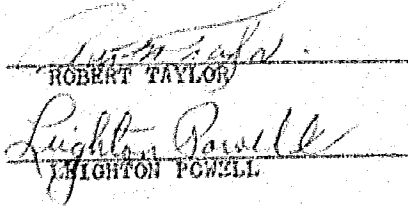 ROBERT TAYLOR
Leighton Powell
LEIGHTON POWELL